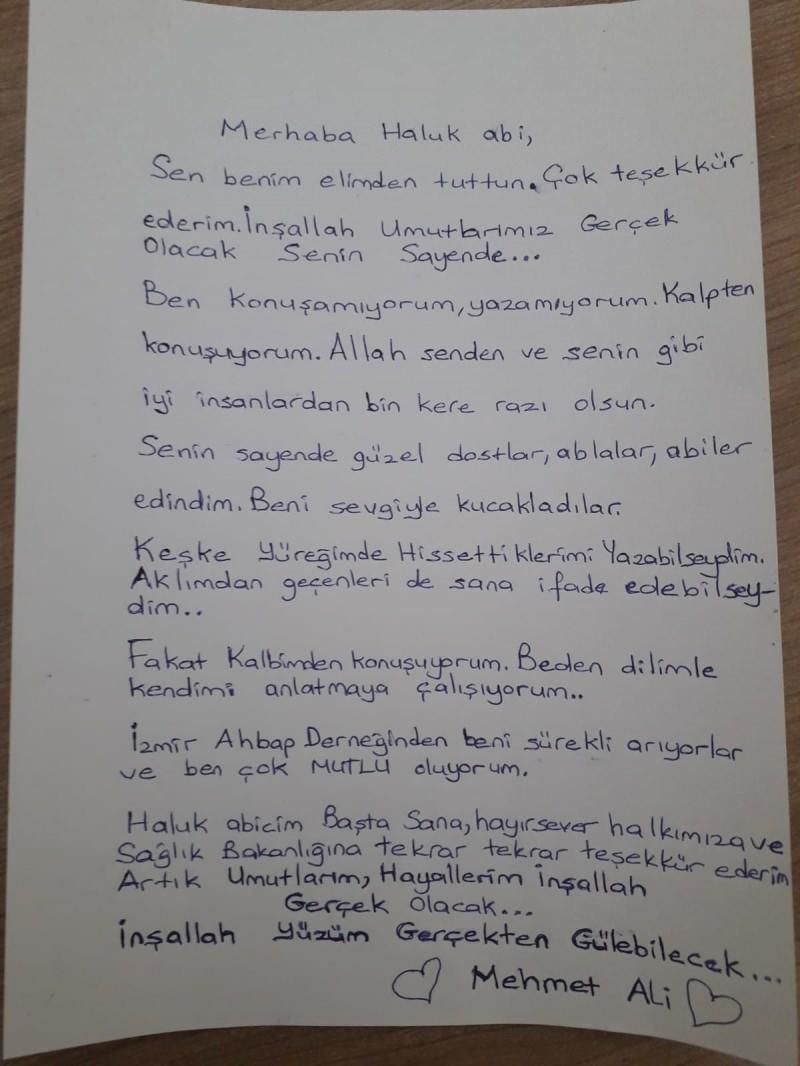 Merhaba Haluk abi,
Sen benim elimden tuttun. Çok teşekkür
ederim. İnşallah Umutlarımız Gerçek
Olacak Senin Sayende...
Ben konuşamıyorum, yazamıyorum. Kalpten
konuşuyorum. Allah senden ve senin gibi
iyi insanlardan bin kere razı olsun.
Senin sayende güzel dostlar, ablalar, abiler
edindim. Beni sevgiyle kucakladılar.
Keşke Yüreğimde Hissettiklerimi Yazabilseydim.
Aklımdan geçenleri de sana ifade edebilsey-
dim..
Fakat Kalbimden konuşuyorum. Beden dilimle
kendimi anlatmaya çalışıyorum..
İzmir Ahbap Derneğinden beni sürekli arıyorlar
ve ben çok MUTLU oluyorum.
Haluk abicim Başta Sana, hayırsever halkımıza ve
Sağlık Bakanlığına tekrar tekrar teşekkür ederim
Artık Umutlarım, Hayallerim İnşallah
Gerçek Olacak...
İnşallah Yüzüm Gerçekten Gülebilecek...
Mehmet Ali